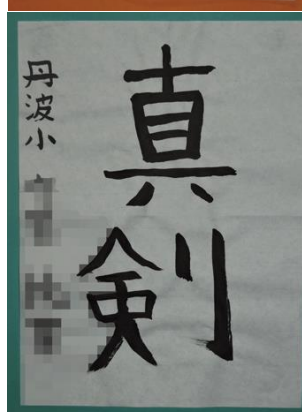 真剣
丹波小